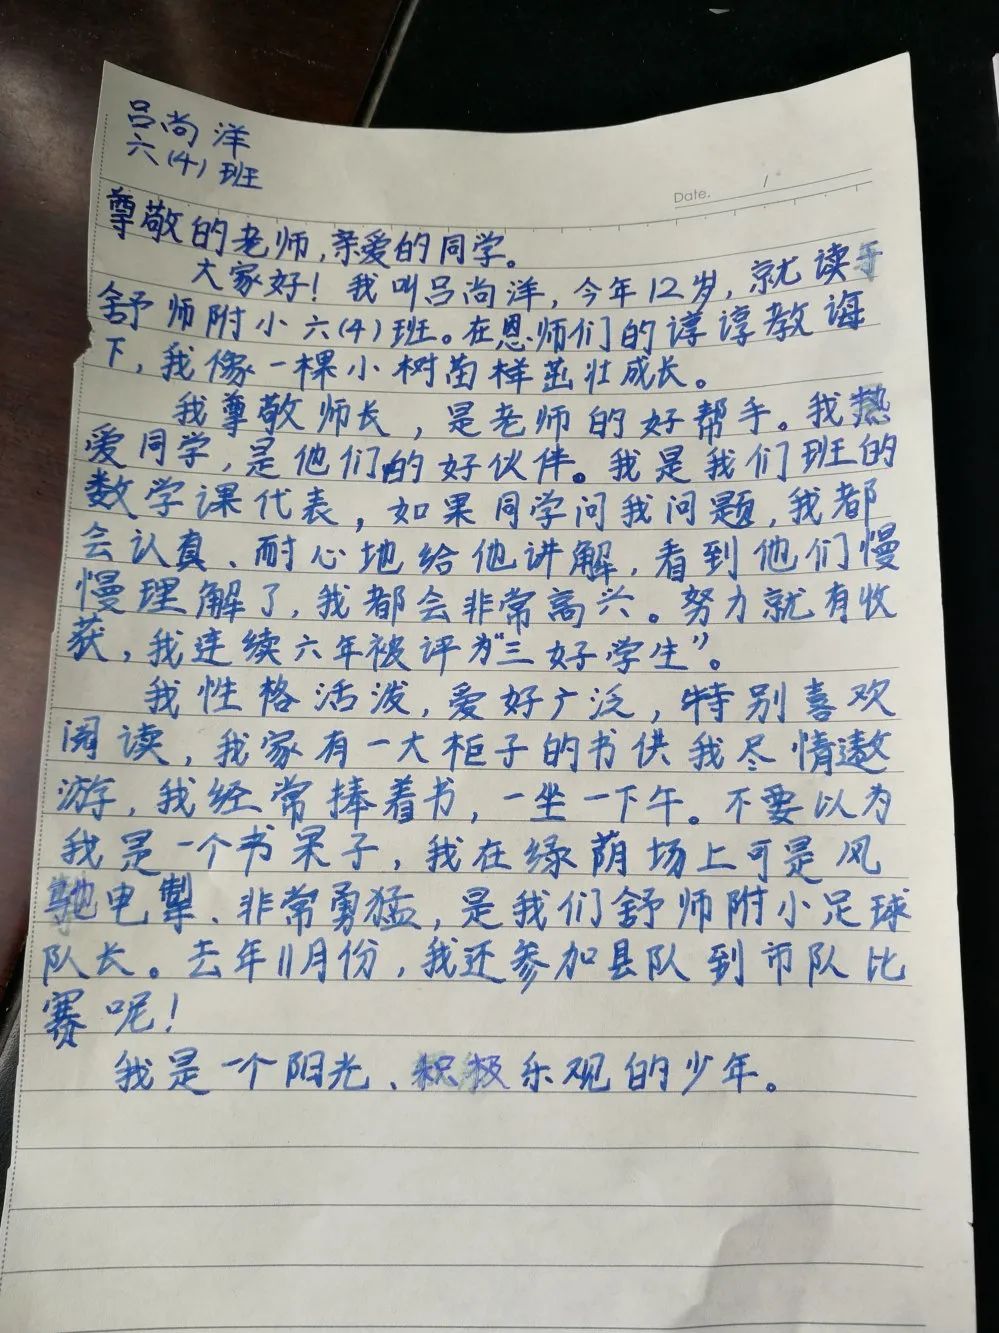 吕尚洋
六(4)班
Date. /
尊敬的老师,亲爱的同学。
大家好!我叫吕尚洋,今年12岁,就读于
舒师附小六(4)班。在恩师们的谆谆教诲
下,我像一棵小树苗样茁壮成长。
我尊敬师长,是老师的好帮手。我热
爱同学,是他们的好伙伴。我是我们班的
数学课代表,如果同学问我问题,我都
会认真、耐心地给他讲解,看到他们慢
慢理解了,我都会非常高兴。努力就有收
获,我连续六年被评为“三好学生”。
我性格活泼,爱好广泛,特别喜欢
阅读,我家有一大柜子的书供我尽情遨
游,我经常捧着书,一坐一下午。不要以为
我是一个书呆子,我在绿荫场上可是风
驰电掣、非常勇猛,是我们舒师附小足球
队长。去年11月份,我还参加县队到市队比
赛呢!
我是一个阳光、积极乐观的少年。